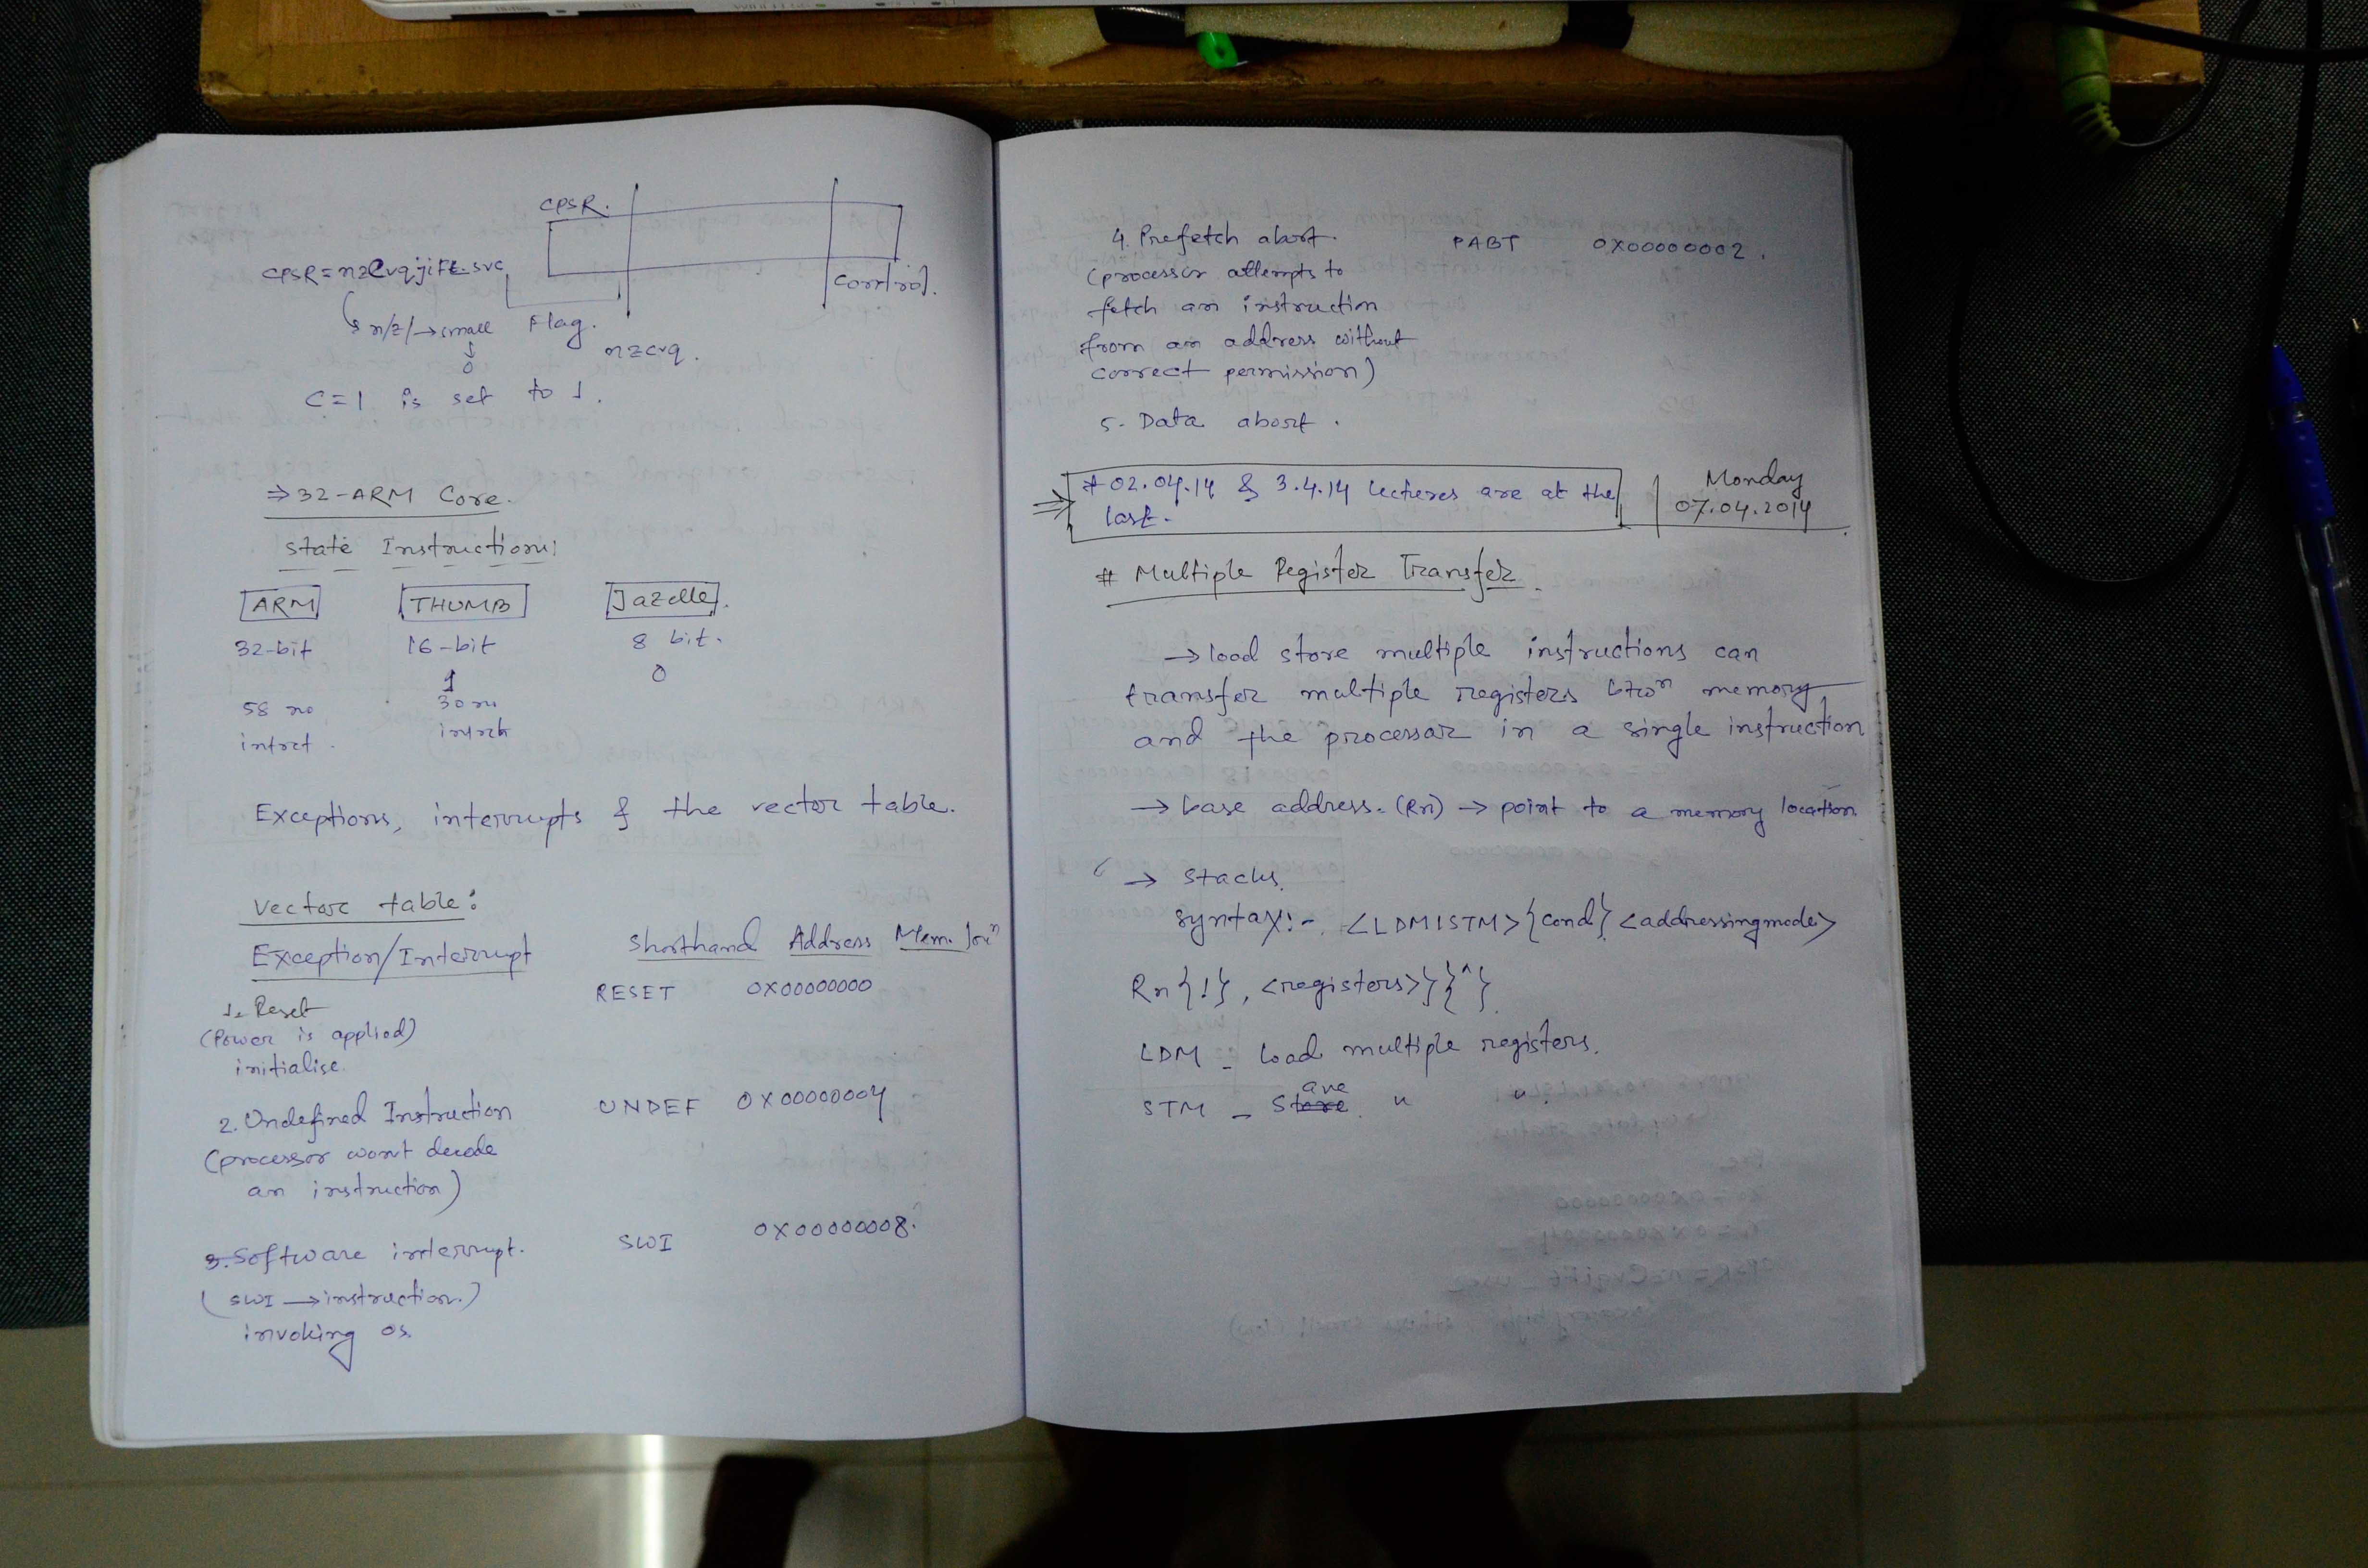 CPSR.
CPSR = nzCvqjiFt-svc
Control.
n/z/→small Flag.
0
nzcvq.
C=1 is set to 1.
⇒ 32-ARM Core.
State Instructions:
ARM THUMB Jazelle.
32-bit 16-bit 8 bit.
1 0
58 no 30 no
intrct.
Exceptions, interrupts & the vector table.
Vector table:
Exception/Interrupt Shorthand Address Mem. locn
1. Reset RESET 0X00000000
(Power is applied)
initialise.
2. Undefined Instruction UNDEF 0X00000004
(processor won't decode
an instruction)
3. Software interrupt. SWI 0X00000008.
(SWI → instruction.)
invoking OS.
4. Prefetch abort. PABT 0X00000002.
(processor attempts to
fetch an instruction
from an address without
correct permission)
5. Data abort.
⇒ # 02.04.14 & 3.4.14 lectures are at the
last.
Monday
07.04.2014
# Multiple Register Transfer.
→ load store multiple instructions can
transfer multiple registers btwn memory
and the processor in a single instruction
→ base address. (Rn) → point to a memory location
→ Stacks.
Syntax:- <LDM|STM>{cond}<addressingmode>
Rn{!}, <registers>}{^}
LDM - Load multiple registers.
ave
STM - Store " ".